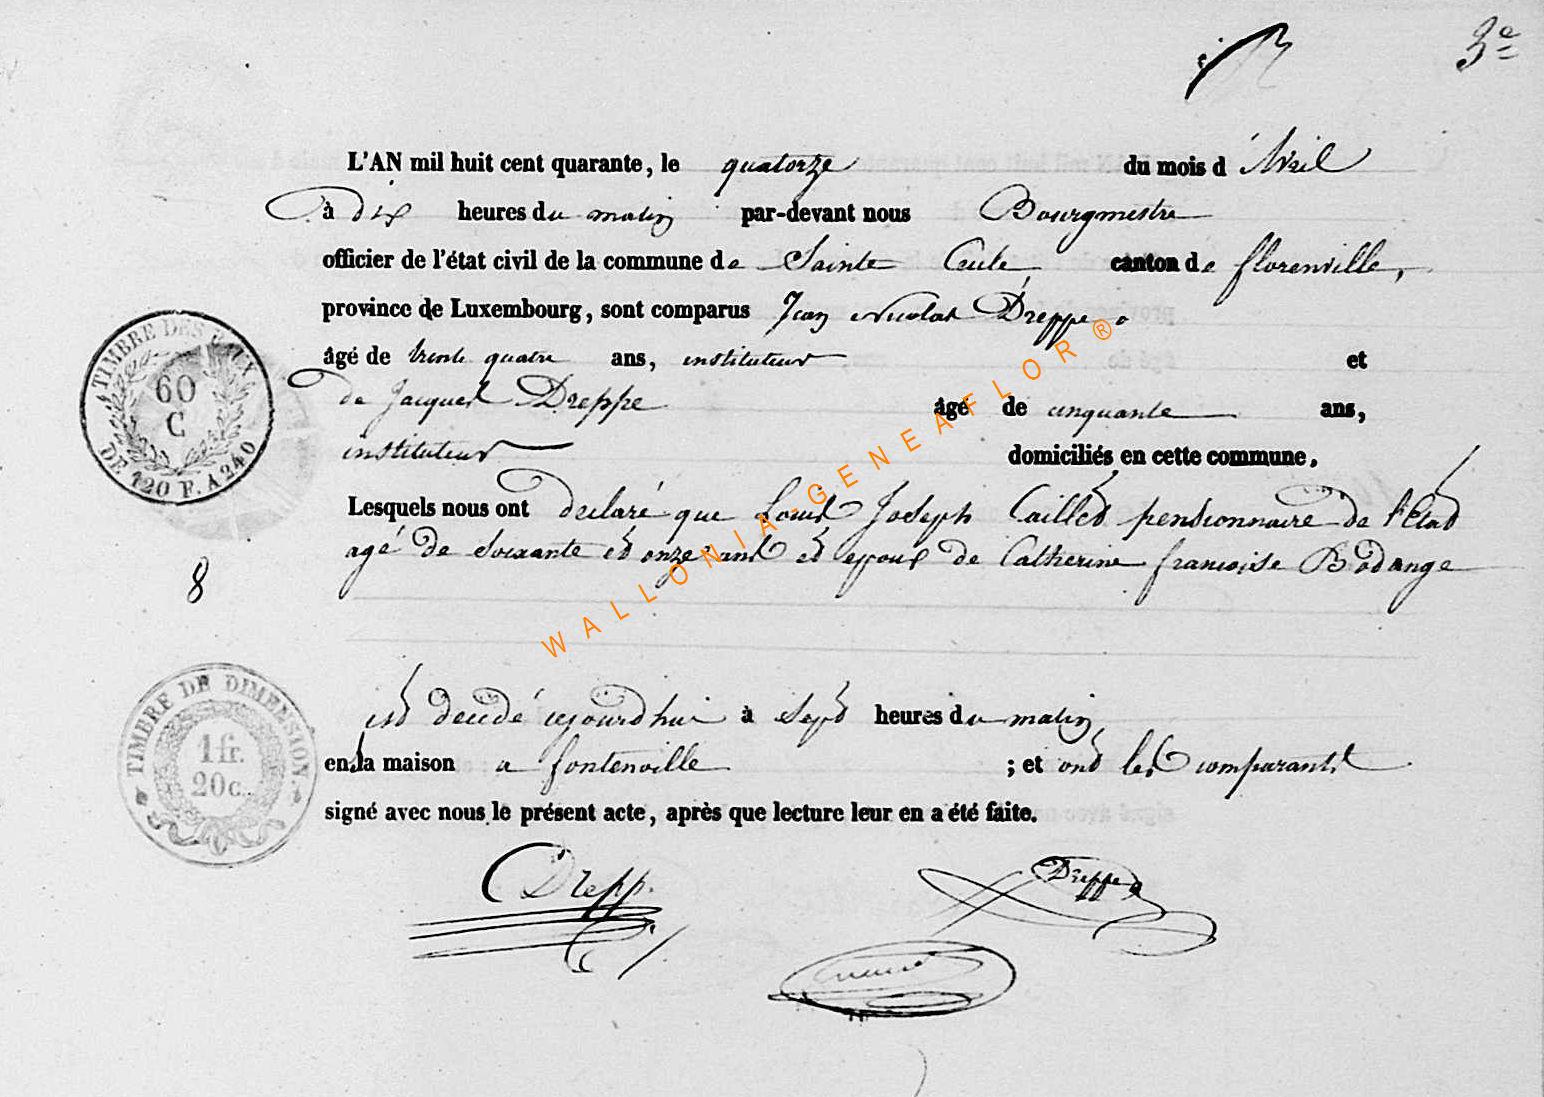 3e
L'AN mil huit cent quarante, le quatorze du mois d'Avril
à dix heures du matin par-devant nous Bourgmestre
officier de l'état civil de la commune de Sainte Cécile canton de florenville,
province de Luxembourg, sont comparus Jean Nicolas Dreppe
âgé de trente quatre ans, instituteur et
de Jacques Dreppe âgé de cinquante ans,
instituteur domiciliés en cette commune,
Lesquels nous ont déclaré que Louis Joseph Caillet pensionnaire de l'état
agé de soixante et onze ans et epoux de Catherine francoise Bodange
8
est decedé aujourd'hui à sept heures du matin
en la maison a fontenoille ; et ont les comparants
signé avec nous le présent acte, après que lecture leur en a été faite.
Drepp.
Dreppe
TIMBRE DES
60
C
DE 120 F. A 240
TIMBRE DE DIMENSION
1 fr.
20 c.
WALLONIA-GENEAFLOR®